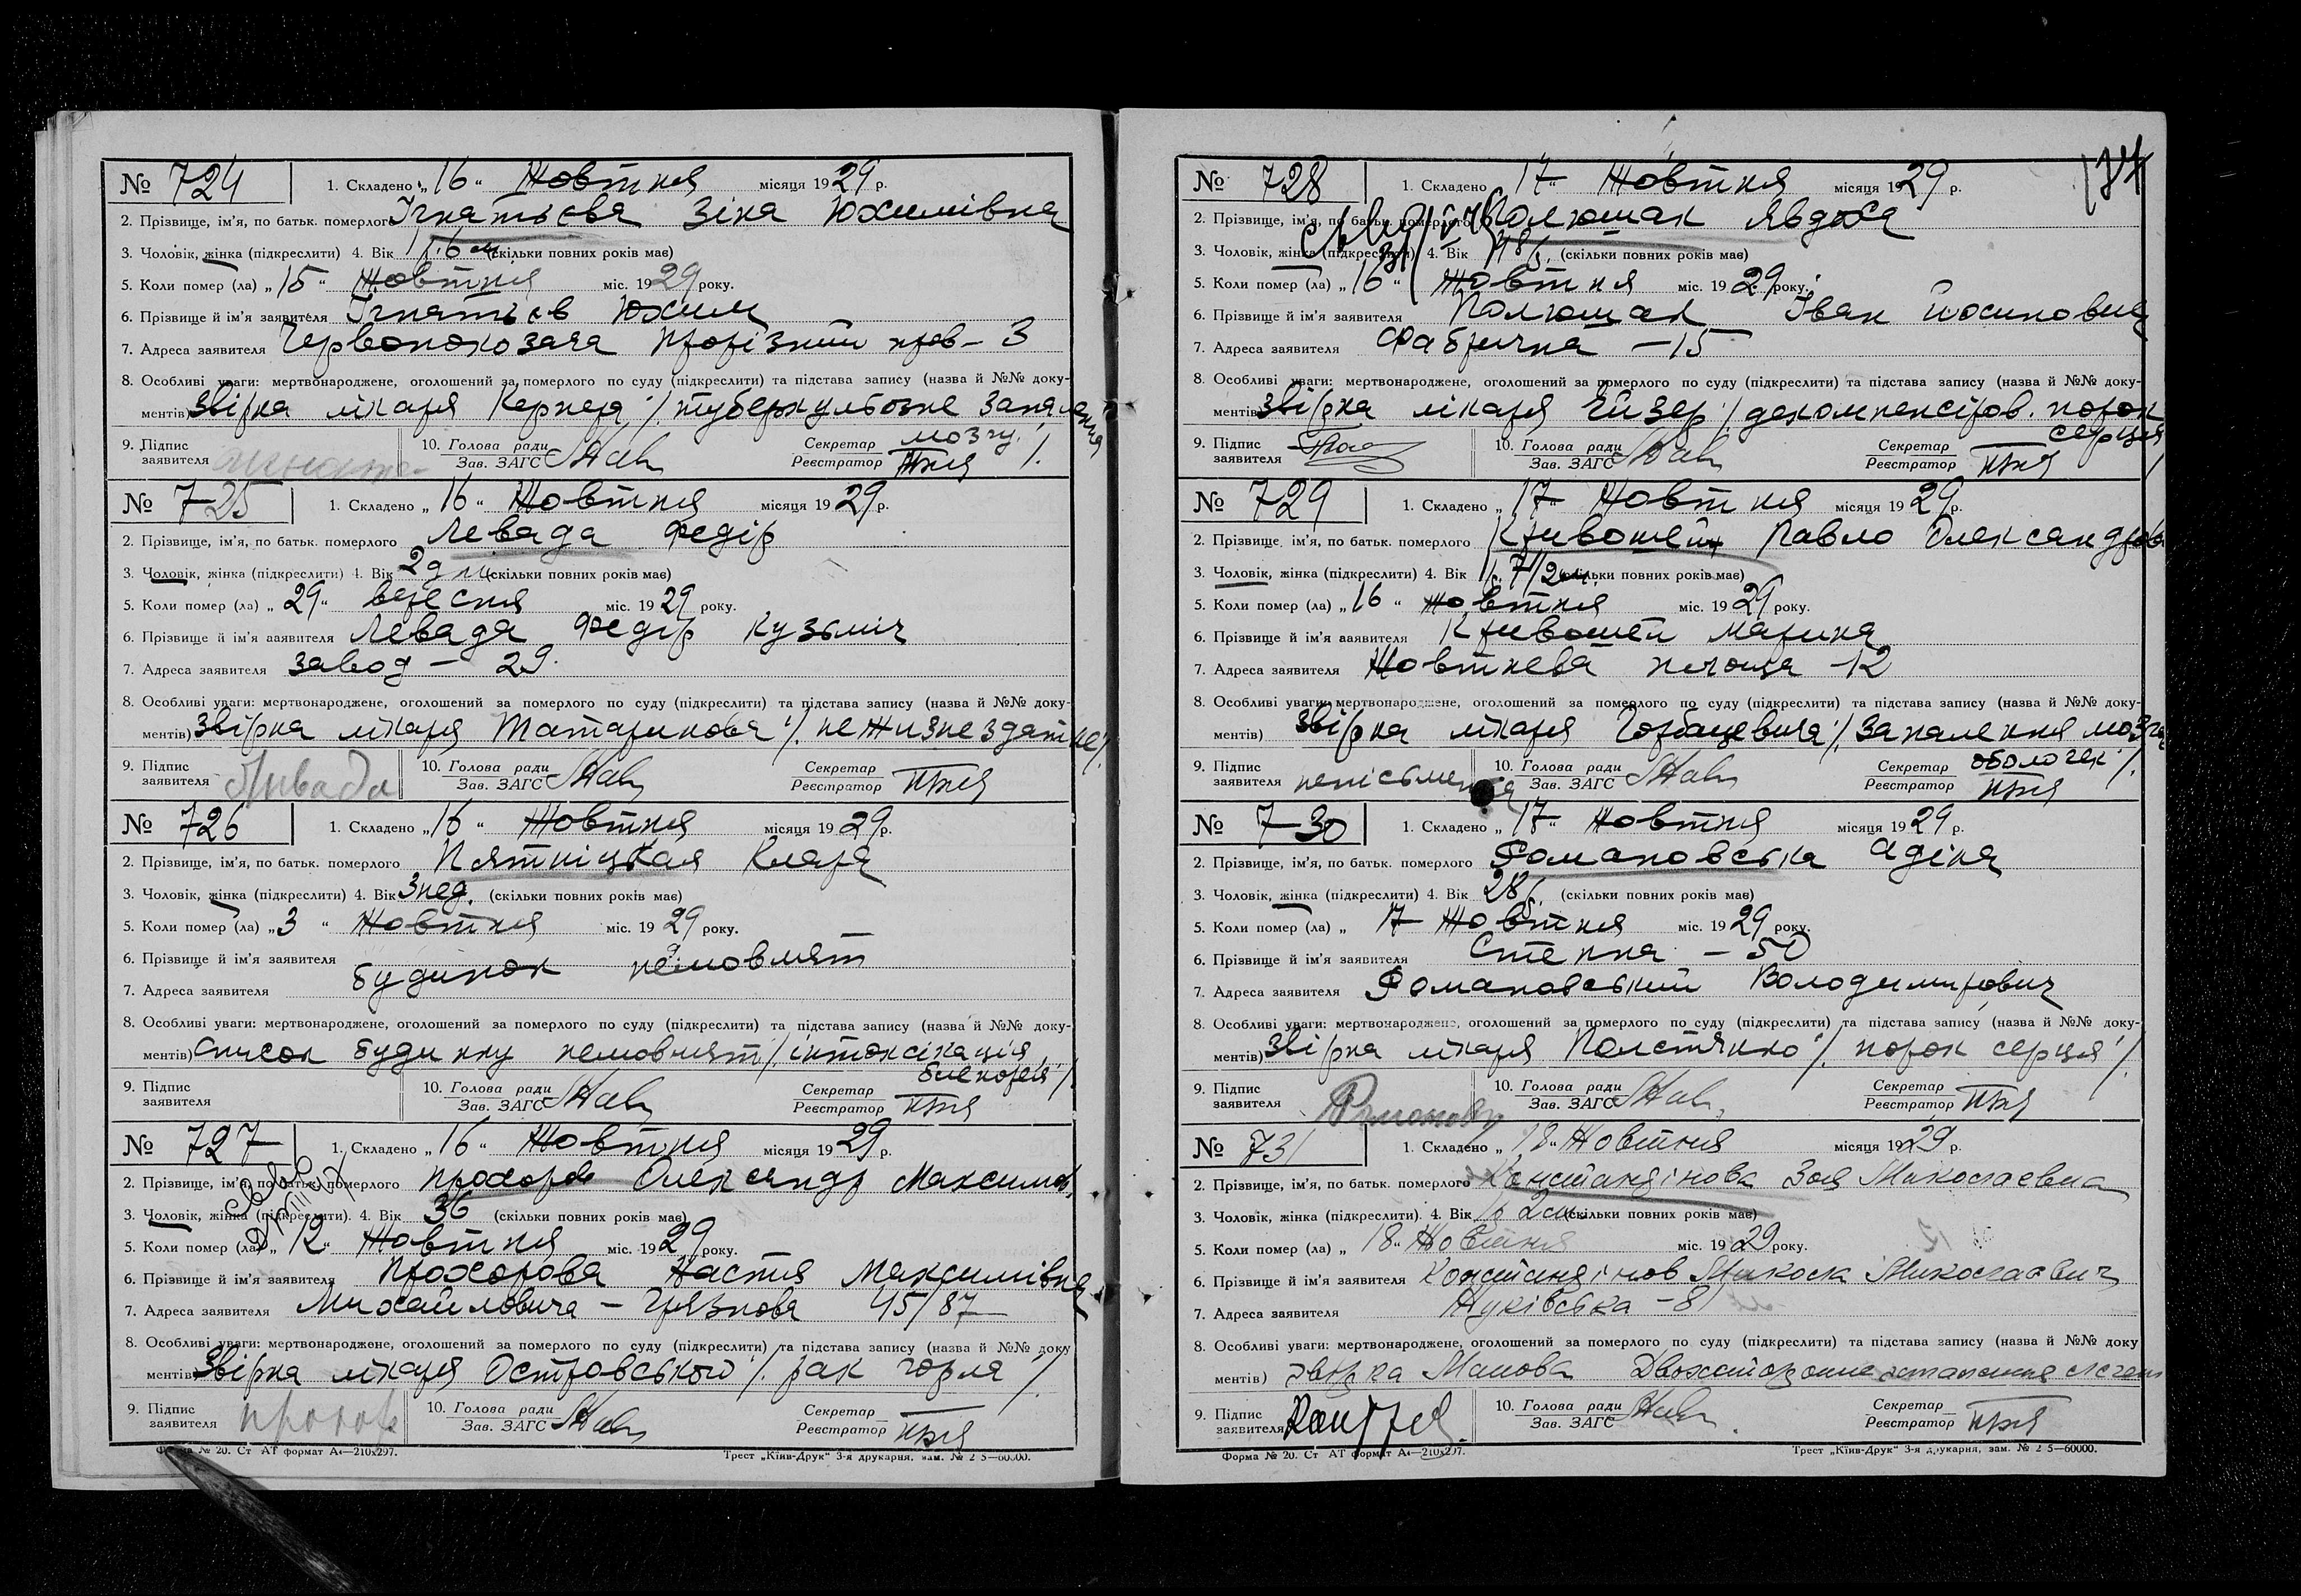 № 724 1. Складено „16“ Жовтня місяця 1929 р.
2. Прізвище, ім'я, по батьк. померлого Ігнатьєва Зіна Юхимівна
3. Чоловік, жінка (підкреслити) 4. Вік 1 р. 6 м (скільки повних років має)
5. Коли помер (ла) „15“ Жовтня міс. 1929 року.
6. Прізвище й ім'я заявителя Ігнатьєв Юхим
7. Адреса заявителя Червонокозача прорізний пров – 3
8. Особливі уваги: мертвонароджене, оголошений за померлого по суду (підкреслити) та підстава запису (назва й №№ доку-
ментів) Звірка лікаря Кернера /. туберкульозне запалення
мозгу. /.
9. Підпис заявителя 10. Голова ради Зав. ЗАГС Секретар Реєстратор
№ 725 1. Складено „16“ Жовтня місяця 1929 р.
2. Прізвище, ім'я, по батьк. померлого Левада Федір
3. Чоловік, жінка (підкреслити) 4. Вік 2 дні (скільки повних років має)
5. Коли помер (ла) „29“ вересня міс. 1929 року.
6. Прізвище й ім'я заявителя Левада Федір Кузьміч
7. Адреса заявителя завод – 29.
8. Особливі уваги: мертвонароджене, оголошений за померлого по суду (підкреслити) та підстава запису (назва й №№ доку-
ментів) Звірка лікаря Татаринова /. нежизнездатне /.
9. Підпис заявителя Ливада 10. Голова ради Зав. ЗАГС Секретар Реєстратор
№ 726 1. Складено „16“ Жовтня місяця 1929 р.
2. Прізвище, ім'я, по батьк. померлого Пятніцькая Клара
3. Чоловік, жінка (підкреслити) 4. Вік 3 нед. (скільки повних років має)
5. Коли помер (ла) „3“ Жовтня міс. 1929 року.
6. Прізвище й ім'я заявителя
будинок немовлят
7. Адреса заявителя
8. Особливі уваги: мертвонароджене, оголошений за померлого по суду (підкреслити) та підстава запису (назва й №№ доку-
ментів) Список будинку немовлят /. інтоксікація,
бленорея /.
9. Підпис заявителя 10. Голова ради Зав. ЗАГС Секретар Реєстратор
№ 727 1. Складено „16“ Жовтня місяця 1929 р.
2. Прізвище, ім'я, по батьк. померлого Прохоров Олександр Максимов.
3. Чоловік, жінка (підкреслити). 4. Вік 36 (скільки повних років має)
5. Коли помер (ла) „12“ Жовтня міс. 1929 року.
6. Прізвище й ім'я заявителя Прохорова Настя Максимівна
7. Адреса заявителя Михайловича – Грязнова 45/87
8. Особливі уваги: мертвонароджене, оголошений за померлого по суду (підкреслити) та підстава запису (назва й №№ доку
ментів) Звірка лікаря Островського /. рак горла /.
9. Підпис заявителя 10. Голова ради Зав. ЗАГС Секретар Реєстратор
Форма № 20. Ст АТ формат А4—210х297. Трест „Київ-Друк“ 3-я друкарня, зам. № 2 5—60000.
№ 728 1. Складено „17“ Жовтня місяця 1929 р.
2. Прізвище, ім'я, по батьк. померлого Полюшак Явдоха
3. Чоловік, жінка (підкреслити) 4. Вік 48 р. (скільки повних років має)
5. Коли помер (ла) „16“ Жовтня міс. 1929 року.
6. Прізвище й ім'я заявителя Полюшак Іван Йосипович
7. Адреса заявителя Фабрична – 15
8. Особливі уваги: мертвонароджене, оголошений за померлого по суду (підкреслити) та підстава запису (назва й №№ доку-
ментів) Звірка лікаря Гйзер /. декомпенсіров. порок
серця /.
9. Підпис заявителя 10. Голова ради Зав. ЗАГС Секретар Реєстратор
№ 729 1. Складено „17“ Жовтня місяця 1929 р.
2. Прізвище, ім'я, по батьк. померлого Кривошеїн Павло Олександров
3. Чоловік, жінка (підкреслити) 4. Вік (скільки повних років має)
5. Коли помер (ла) „16“ Жовтня міс. 1929 року.
6. Прізвище й ім'я заявителя Кривошеї Марина
7. Адреса заявителя Жовтнева площа – 12
8. Особливі уваги: мертвонароджене, оголошений за померлого по суду (підкреслити) та підстава запису (назва й №№ доку-
ментів) Звірка лікаря Горбацевича /. Запалення мозгов.
оболочек /.
9. Підпис заявителя непісьменна 10. Голова ради Зав. ЗАГС Секретар Реєстратор
№ 730 1. Складено „17“ Жовтня місяця 1929 р.
2. Прізвище, ім'я, по батьк. померлого Романовська Адіна
3. Чоловік, жінка (підкреслити) 4. Вік 28 р. (скільки повних років має)
5. Коли помер (ла) „17 Жовтня міс. 1929 року.
6. Прізвище й ім'я заявителя Степна – 50
7. Адреса заявителя Романовський Володимирович
8. Особливі уваги: мертвонароджене, оголошений за померлого по суду (підкреслити) та підстава запису (назва й №№ доку-
ментів) Звірка лікаря Полстянко /. порок серця /.
9. Підпис заявителя 10. Голова ради Зав. ЗАГС Секретар Реєстратор
№ 731 1. Складено „18“ Жовтня місяця 1929 р.
2. Прізвище, ім'я, по батьк. померлого Константінова Зоя Миколаевна
3. Чоловік, жінка (підкреслити). 4. Вік (скільки повних років має)
5. Коли помер (ла) „18“ Жовтня міс. 1929 року.
6. Прізвище й ім'я заявителя Константінов Микола Миколаєвич
7. Адреса заявителя Жуківська – 8
8. Особливі уваги: мертвонароджене, оголошений за померлого по суду (підкреслити) та підстава запису (назва й №№ доку
ментів) Звірка Манова
9. Підпис заявителя 10. Голова ради Зав. ЗАГС Секретар Реєстратор
Форма № 20. Ст АТ формат А4—210х297. Трест „Київ-Друк“ 3-я друкарня, зам. № 2 5—60000.